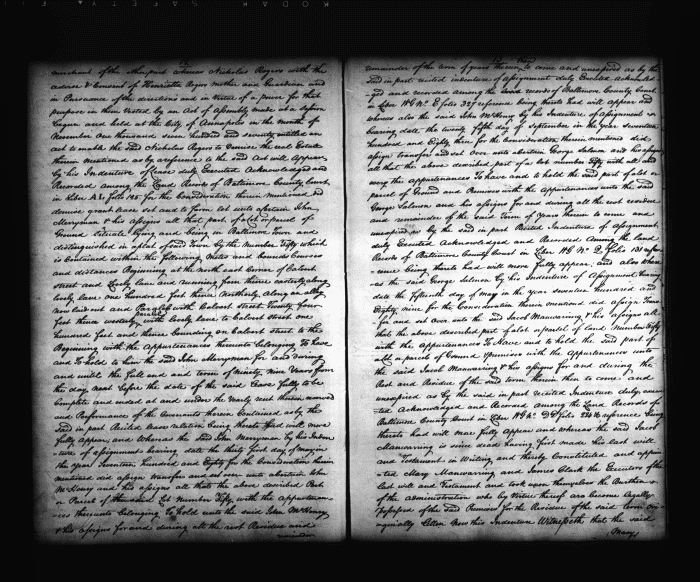 merchant of the other part whereas Nicholas Rogers with the
advice & Consent of Henrietta Rogers mother and Guardian and
in Pursuance of the directions and in Virtue of a power for that
purpose in them Vested by an Act of Assembly made at a session
begun and held at the City of Annapolis in the month of
November one thousand seven hundred and seventy entitled an
act to enable the said Nicholas Rogers to Demise the real Estate
therein mentioned as by a reference to the said Act will Appear
by his Indenture of Lease duly Executed Acknowledged and
Recorded Among the Land Records of Baltimore County Court
in Liber AL folio 195 for the Consideration therein mentioned did
demise grant lease set and to farm let unto a certain John
Merryman & his assigns all that part of a Lot or parcel of
Ground situate lying and being in Baltimore Town and
distinguished in a plat of said Town by the Number Fifty which
is Contained within the following metes and bounds Courses
and distances Beginning at the north east Corner of Calvert
street and Lovely lane and running from thence easterly along
Lovely lane one hundred feet thence Northerly along an alley
now laid out and Parallel with Calvert street Twenty four
feet thence westerly with Lovely lane to Calvert street one
hundred feet and thence bounding on Calvert street to the
Beginning with the Appurtenances thereunto belonging To have
and To hold to him the said John Merryman for and during
and until the full end and term of Ninety Nine Years from
the day next before the date of the said Lease fully to be
Complete and ended at and under the Yearly rent therein reserved
and Performance of the Covenants therein Contained as by the
said in part Recited lease relation being thereto had will more
fully appear, and whereas the said John Merryman by his Inden
-ture of assignment bearing date the thirty first day of may in
the year Seventeen Hundred and Eighty for the Consideration therein
mentioned did assign transfer and set over unto a certain John
McHenry and his assigns all that the above described Part
or Parcel of the said Lot Number Fifty with the appurtenan
-ces thereunto belonging To hold unto the said John McHenry
& his assigns for and during all the rest Residue and
remainder
remainder of the term of years therein to come and unexpired as by the
said in part recited indenture of assignment duly Executed Acknowled
-ged and recorded among the land records of Baltimore County Court
in Liber WG No. E folio 327 reference being thereto had will appear and
whereas also the said John McHenry by his Indenture of Assignment
bearing date the twenty fifth day of september in the year seventeen
hundred and Eighty three for the Consideration therein mentioned did
assign transfer and set over unto a certain George Salmon and his assigns
all that the above described part of a lot number Fifty with all and
every the appurtenances To have and to hold the said part of a lot or
parcel of Ground and Premises with the Appurtenances unto the said
George Salmon and his assigns for and during all the rest residue
and remainder of the said Term of Years therein to come and
unexpired as by the said in part Recited Indenture of Assignment
duly Executed Acknowledged and Recorded Among the Land
Records of Baltimore County Court in Liber WG No. folio 131 refer
-ence being thereto had will more fully appear, and also where
-as the said George Salmon by his Indenture of Assignment bearing
date the Fifteenth day of may in the year seventeen hundred and
Eighty Nine for the Consideration therein mentioned did assign Trans
-fer and set over unto the said Jacob Manwarring & his assigns all
that the above described part of a lot or parcel of Land Number Fifty
with the appurtenances To Have and to hold the said part of
a lot or parcel of Ground & premises with the appurtenances unto
the said Jacob Manwarring & his assigns for and during the
Rest and Residue of the said term therein then to come and
unexpired as by the said in part recited Indenture duly execu
-ted Acknowledged and Recorded Among the Land Records of
Baltimore County Court in Liber WG No. DD folio reference being
thereto had will more fully Appear and whereas the said Jacob
Manwarring is since dead having first made his last will
and Testament in Writing and thereby Constituted and appoin
-ted Mary Manwarring and James Clark the Executors of the
last will and Testament and took upon themselves the Burthen
of the administration who by Virtue thereof are become legally
possessed of the said Premises for the Residue of the said term ori
-ginally Letten Now this Indenture Witnesseth that the said
Mary